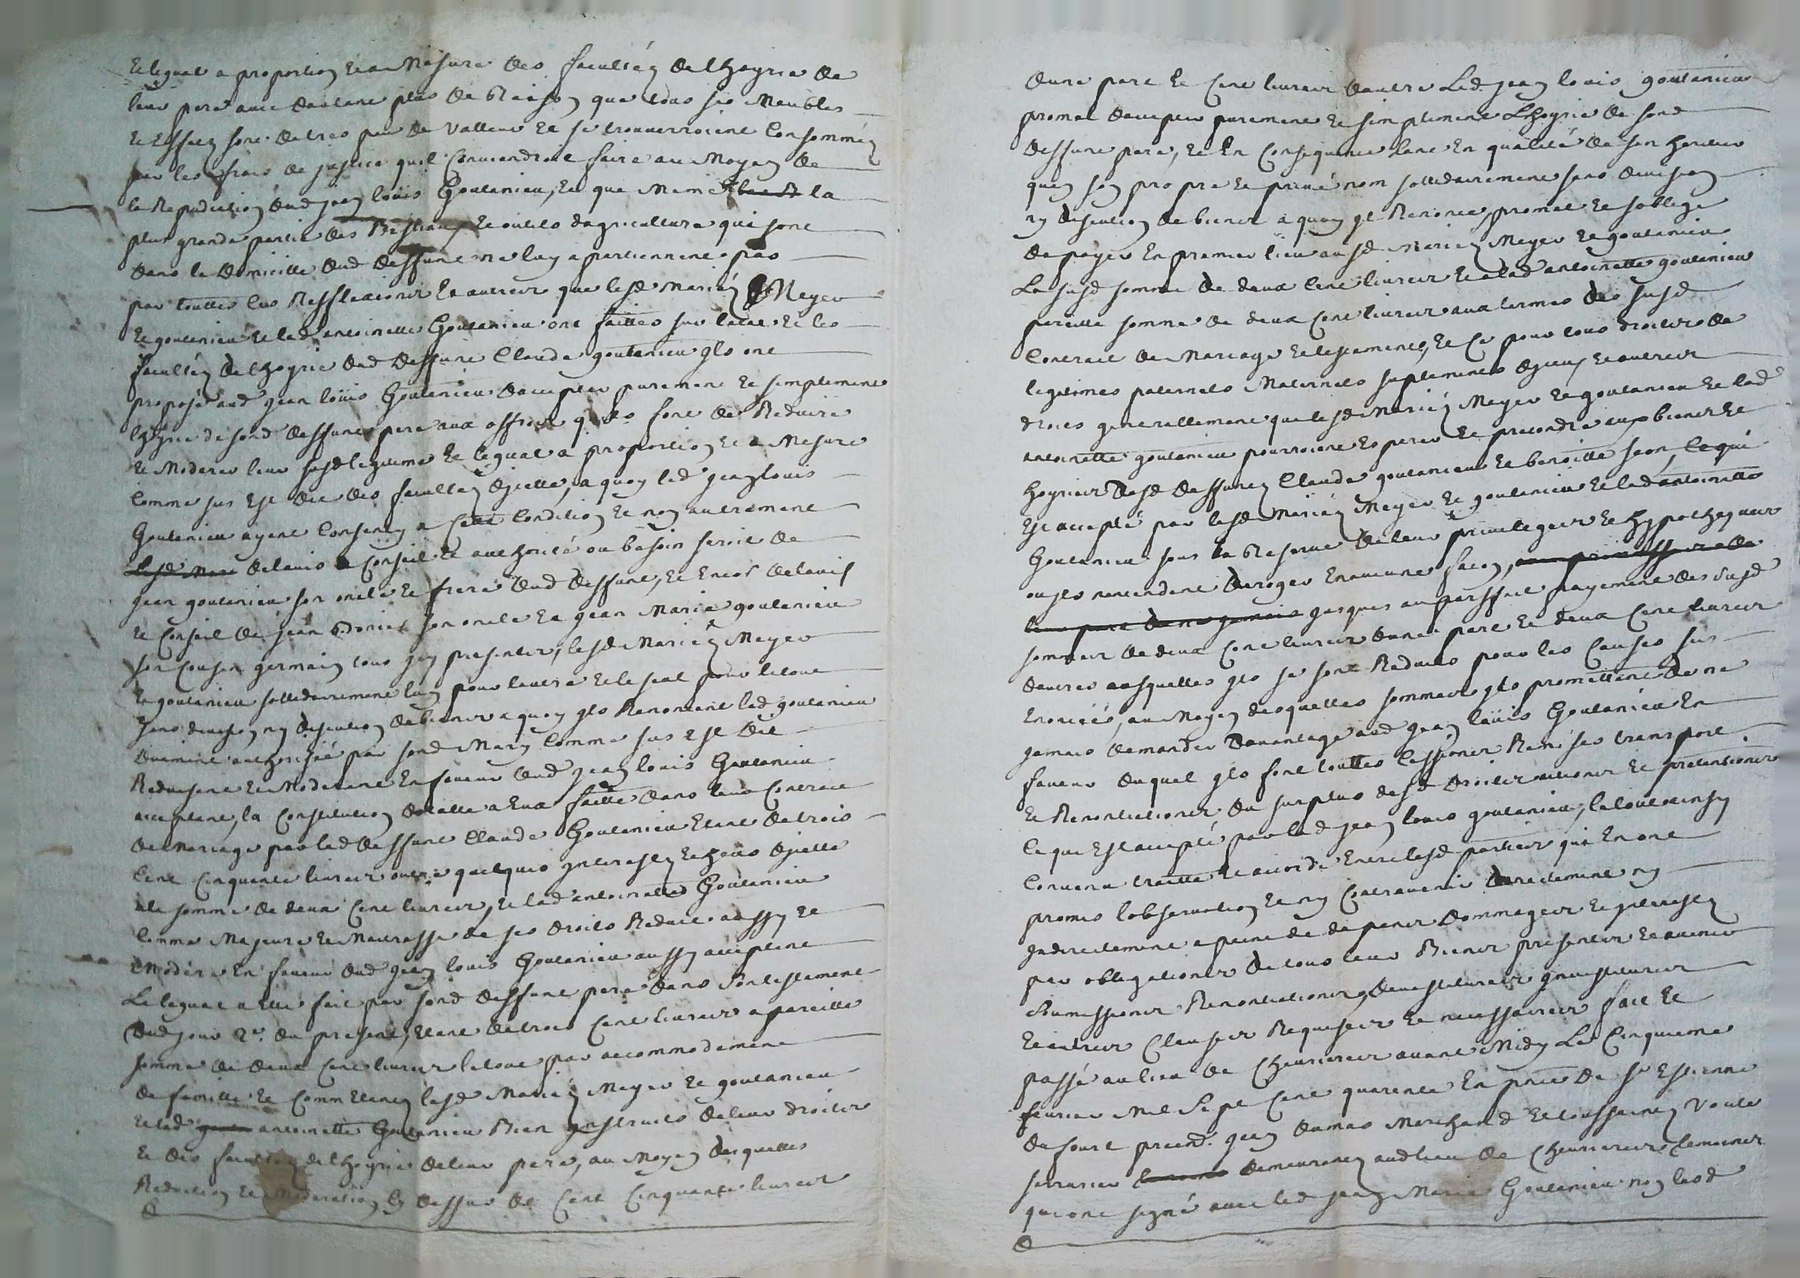 et legat a proportion et a mesure des facultés de lhoyrie de
leur pere avec dautant plus de Raison que tous ses Meubles
et Effaits sont de tres peu de valleur et se trouverroient Consommés
par les frais de justice quil Conviendroit faire au Moyen de
la Repudiation dud jean loüis Goutanieu, Et que Meme la
plus grande partie des Bestiaux et outils dagriculture qui sont
dans le domicille dud deffunt ne luy apartiennent pas
par touttes les Refflections Et autres que lesd Mariés Meyer
et goutanieu et lad antoinette Goutanieu ont faittes sur letat et les
facultés de lhoyrie dud deffunt Claude goutanieu ils ont
proposé aud jean loüis Goutanieu daccepter purement et simplement
lhoyrie de sond deffunt pere aux offres quils font de Reduire
et Moderer leur susd legitime et legat a proportion et a Mesure
Comme sus Est dit des facultés dicelle, a quoy led jean louis
Goutanieu ayant Consenty a Cette Condition et non autrement
de lavis Conseil et authorité ou besoin seroit de
jean goutanieu son oncle et frere dud deffunt, et Encor de lavis
et Conseil de jean son oncle et jean Marie goutanieu
son cousin germain tous icy presents, lesd Mariés Meyer
et goutanieu sollidairement lun pour lautre et le seul pour le tout
sans division ny discution de biens a quoy ils Renoncent lad goutanieu
duement authorisée par sond Mary Comme sus Est dit
Reduisent et Moderent En faveur dud jean louis Goutanieu
acceptant, la Constitution dotalle a Eux faitte dans leur Contrat
de Mariage par led deffunt Claude Goutanieu Etant de trois
Cent Cinquante livres outre quelques interests et hors dicelle
a la somme de deux Cent livres, et lad antoinette Goutanieu
Comme Majeure et Maitresse de ses droits Reduit aussy et
Modere En faveur dud jean louis Goutanieu aussy acceptant
Le legat a Elle fait par sond deffunt pere dans son testament
dud jour 2e. du present, Etant de trois Cent livres a pareille
somme de deux Cent livres le tout par accommodement
de famille et Comm Etant lesd Mariés Meyer et goutanieu
et lad antoinette Goutanieu Bien instruits de leur droits
et des facultés de lhoyrie de leur pere, au Moyen desquelles
Reduction et Moderation cy dessus de Cent Cinquante livres
dune part et Cent livres dautre led jean louis goutanieu
promet daccepter purement et simplement Lhoyrie de sond
deffunt pere, et En Consequence tant En qualité de son heritier
quen son propre et privé nom sollidairement sans division
ny discution de biens a quoy il Renonce, promet et soblige
de payer En premier lieu ausd Mariés Meyer et goutanieu
La susd somme de deux Cent livres et a lad antoinette goutanieu
pareille somme de deux Cent livres aux termes des susd
Contrat de Mariage et testament, et Ce pour tous droits de
legitimes paternels Maternels suplements diceux et autres
droits generallement que lesd Mariés Meyer et goutanieu et lad
antoinette goutanieu pourroient Esperer et pretendre aux biens et
hoyries desd deffunts Claude goutanieu et benoitte Ce qui
Est accepté par lesd Mariés Meyer et goutanieu et lad antoinette
Goutanieu sous la Reserve de leur privileges et hypotheques
ou ils nentendent deroger En aucune facon,
jusques au parffait payement des susd
sommes de deux Cent livres dune part et deux Cent livres
dautres ausquelles ils se sont Reduits pour les Causes sus
Enoncés, au Moyen desquelles sommes ils promettent de ne
jamais demander davantage aud jean loüis Goutanieu En
faveur duquel ils font touttes Cessions Remises transport
et Renonciations du surplus desd droits actions et pretentions
Ce que Est accepté par led jean louis goutanieu, le tout ainsy
Convenu traitté et accordé Entre lesd parties qui En ont
promis lobservation et ny Contrevenir directement ny
indirectement a peine de depens dommages et interests
par obligations de tous leur Biens presents et avenir
soumissions Renonciations devestitures investitures
et autres Clauses Requises et necessaires fait et
passé au lieu de Chevrieres avant Midy Le Cinquieme
fevrier Mil Sept Cent quarente En pnce de sr Estienne
du four jean damas Marchand et toussaint
serrurier demeurants aud lieu de Chevrieres temoins
qui ont signé avec led jean Marie Goutanieu non lesd